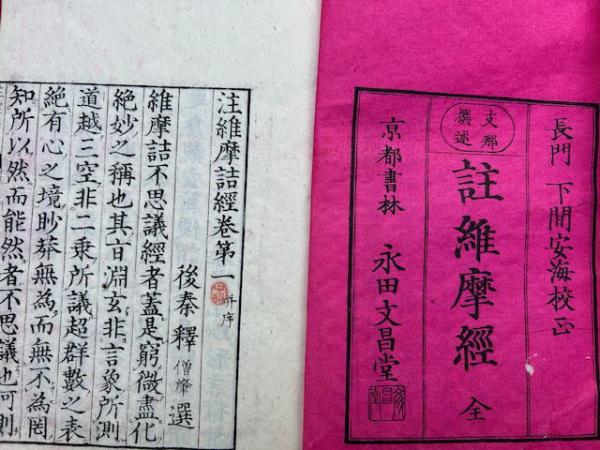 長門 下間安海校正
支那
撰述
註維摩經 全
京都書林 永田文昌堂
注維摩詰經卷第一 并序
後秦釋僧肇選
維摩詰不思議經者蓋是窮微盡化
絶妙之稱也其旨淵玄非言象所測
道越三空非二乗所議超群數之表
絶有心之境眇莽無為而無不為罔
知所以然而能然者不思議也何則